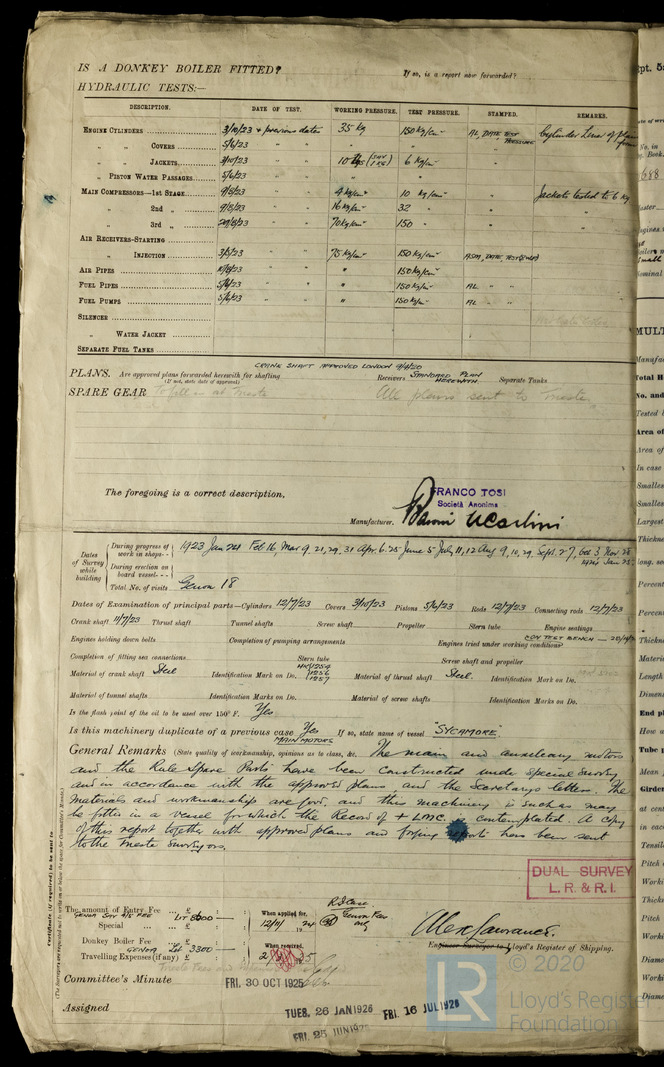 IS A DONKEY BOILER FITTED?
If so, is a report now forwarded?
HYDRAULIC TESTS:—
DESCRIPTION. DATE OF TEST. WORKING PRESSURE. TEST PRESSURE. STAMPED. REMARKS.
ENGINE CYLINDERS 3/10/23 + previous dates 35 kg 150 kg/cm² AL, DATE, TEST PRESSURE Cylinder Liner of
„ „ COVERS 5/6/23 „ „ „ „
„ „ JACKETS 3/10/23 „ „ 6 kg/cm² „
„ PISTON WATER PASSAGES 5/6/23 „ „ „ „
MAIN COMPRESSORS—1st STAGE 9/8/23 „ „ 4 kg/cm² 10 kg/cm² „ Jackets tested to 6 kg
„ 2nd „ 9/8/23 „ „ 16 kg/cm² 32 „ „
„ 3rd „ 29/8/23 „ „ 70 kg/cm² 150 „ „
AIR RECEIVERS-STARTING
„ INJECTION 3/5/23 „ „ 75 kg/cm² 150 kg/cm² ASM, DATE, TEST
AIR PIPES 10/8/23 „ „ „ 150 kg/cm²
FUEL PIPES 5/6/23 „ „ „ 150 kg/cm² AL „ „
FUEL PUMPS 5/6/23 „ „ „ 150 kg/cm² AL „ „
SILENCER
„ WATER JACKET
SEPARATE FUEL TANKS
CRANK SHAFT APPROVED LONDON 9/4/20
PLANS. Are approved plans forwarded herewith for shafting Receivers STANDARD PLAN HEREWITH. Separate Tanks
(If not, state date of approval)
SPARE GEAR To fill in at Trieste All plans sent to Trieste
The foregoing is a correct description,
FRANCO TOSI
Società Anonima
Manufacturer.
Dates of Survey while building
During progress of work in shops-- 1923 Jan 24 Feb 16, Mar 9, 21, 29, 31 Apr 6. 25 June 5 July 11, 12 Aug 9, 10, 29, Sept. 27, Oct 3 Nov 28
1924 Jan 25
During erection on board vessel---
Total No. of visits Genoa 18
Dates of Examination of principal parts—Cylinders 12/7/23 Covers 3/10/23 Pistons 5/6/23 Rods 12/7/23 Connecting rods 12/7/23
Crank shaft 11/7/23 Thrust shaft Tunnel shafts Screw shaft Propeller Stern tube Engine seatings
Engines holding down bolts Completion of pumping arrangements Engines tried under working conditions ON TEST BENCH
Completion of fitting sea connections Stern tube Screw shaft and propeller
Material of crank shaft Steel Identification Mark on Do. 1254 1256 1257 Material of thrust shaft Steel. Identification Mark on Do.
Material of tunnel shafts Identification Marks on Do. Material of screw shafts Identification Marks on Do.
Is the flash point of the oil to be used over 150° F. Yes
Is this machinery duplicate of a previous case Yes If so, state name of vessel "SYCAMORE"
MAIN MOTORS
General Remarks (State quality of workmanship, opinions as to class, &c. The main and auxiliary motors
and the Rule Spare Parts have been constructed under special survey
and in accordance with the approved plans and the Secretarys letters. The
materials and workmanship are good, and this machinery is such as may
be fitted in a vessel for which the Record of + LMC. is contemplated. A copy
of this report together with approved plans and forging reports have been sent
to the Trieste Surveyors.
DUAL SURVEY
L. R. & R. I.
Certificate (if required) to be sent to
(The Surveyors are requested not to write on or below the space for Committee's Minute.)
The amount of Entry Fee ... £ : : When applied for,
GENOA SUR 4/5 FEE LIT 8600
Special ... £ : : 12/11/1924
Donkey Boiler Fee ... £ : : When received,
GENOA Lit 3300
Travelling Expenses (if any) £ : :
Alex Lawrance.
Engineer Surveyor to Lloyd's Register of Shipping.
Committee's Minute FRI. 30 OCT 1925
Assigned
TUES. 26 JAN 1926 FRI. 16 JUL 1926
FRI. 25 JUN 1926
© 2020
Lloyd's Register
Foundation
LR